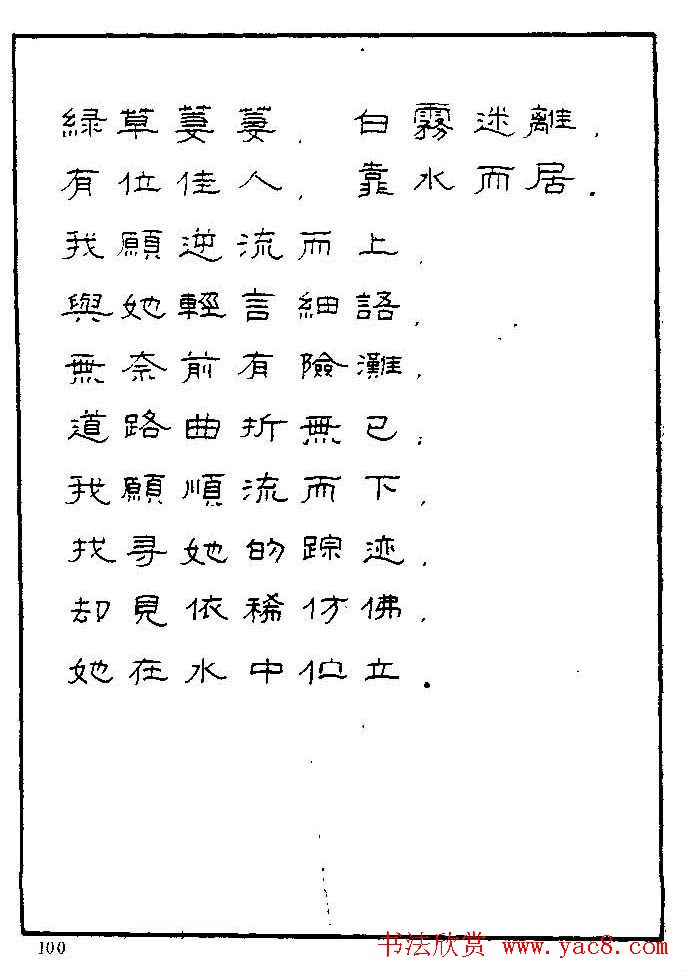 綠草萋萋，白霧迷離，
有位佳人，靠水而居．
我願逆流而上，
與她輕言細語，
無奈前有險灘，
道路曲折無已；
我願順流而下，
找尋她的踪迹，
却見依稀仿佛，
她在水中伫立．
100
书法欣赏 www.yac8.com